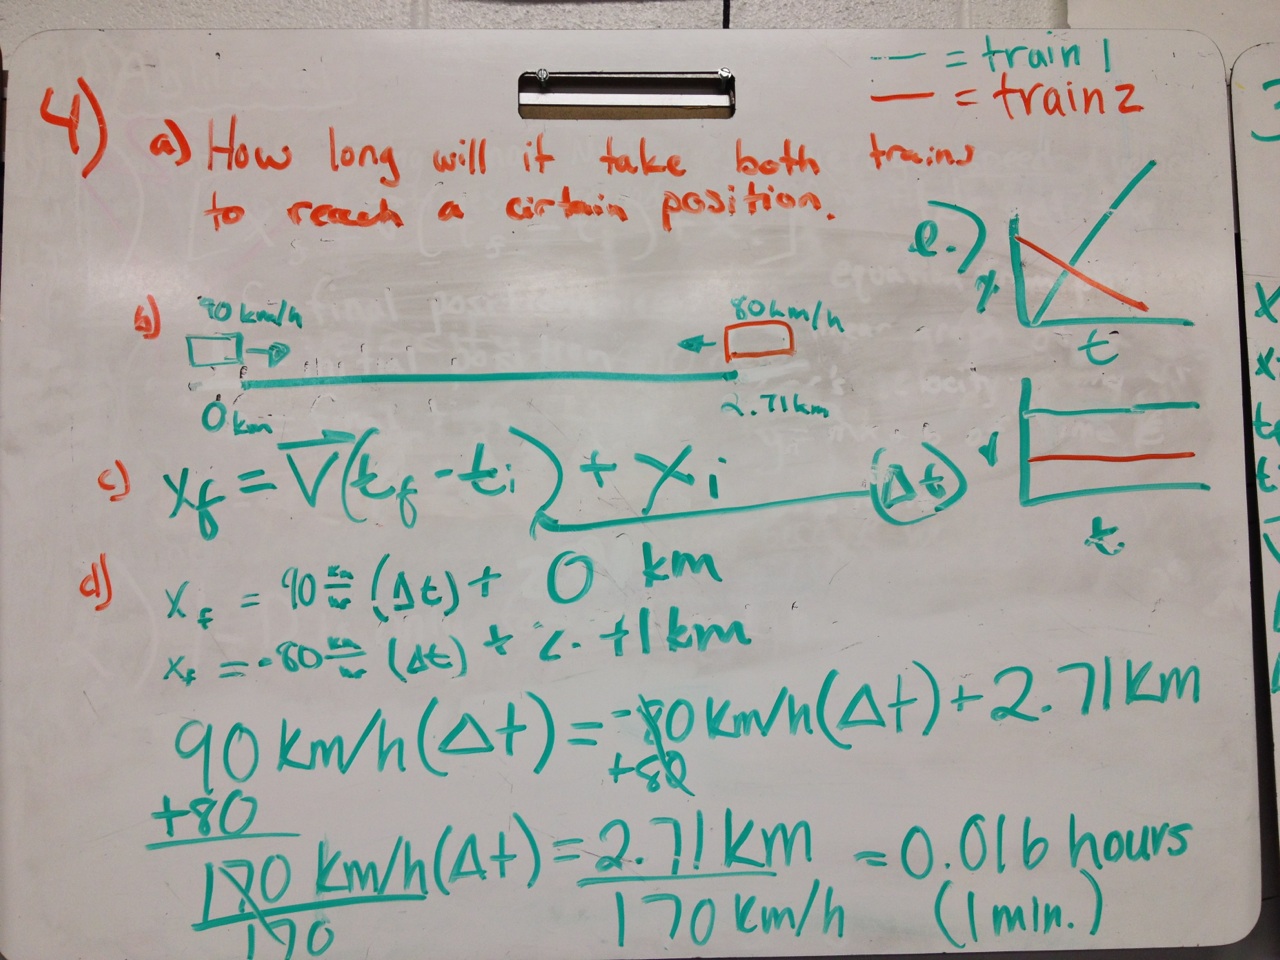 — = train 1
— = train 2
4)
a) How long will it take both trains
to reach a cirtain position.
b)
90 km/h
80 km/h
0 km
2.71 km
c) xf = V(tf - ti) + xi
(Δt)
d)
xf = 90 km/hr (Δt) + 0 km
xf = -80 km/hr (Δt) + 2.71km
90 km/h(Δt) = -80 km/h(Δt) + 2.71 km
+80
+80
170 km/h(Δt) = 2.71 km = 0.016 hours
170
170 km/h
(1 min.)
e.)
x
t
v
t
3